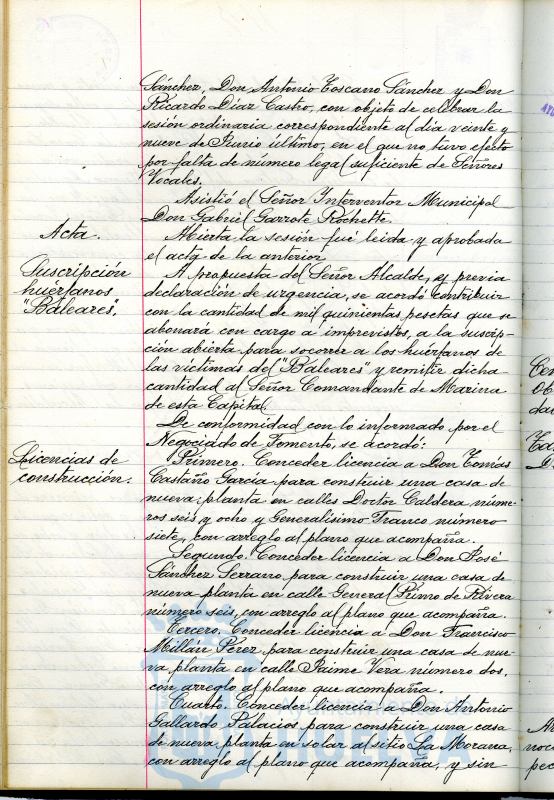 Sánchez, Don Antonio Toscano Sánchez y Don
Ricardo Díaz Castro, con objeto de celebrar la
sesión ordinaria correspondiente al día veinte y
nueve de Junio último, en el que no tuvo efecto
por falta de número legal suficiente de Señores
Vocales.
Asistió el Señor Interventor Municipal
Don Gabriel Garrote Rochette.
Acta.
Abierta la sesión fué leida y aprobada
el acta de la anterior
Suscripción
huérfanos
"Baleares".
A propuesta del Señor Alcalde, y previa
declaración de urgencia, se acordó contribuir
con la cantidad de mil quinientas pesetas que se
abonará con cargo a imprevistos, a la suscrip-
ción abierta para socorrer a los huérfanos de
las víctimas del "Baleares" y remitir dicha
cantidad al Señor Comandante de Marina
de esta Capital.
De conformidad con lo informado por el
Negociado de Fomento, se acordó:
Licencias de
construcción.
Primero. Conceder licencia a Don Tomás
Castaño García para construir una casa de
nueva planta en calles Doctor Caldera núme-
ros seis y ocho y Generalísimo Franco número
siete, con arreglo al plano que acompaña.
Segundo. Conceder licencia a Don José
Sánchez Serrano para construir una casa de
nueva planta en calle General Primo de Rivera
número seis, con arreglo al plano que acompaña.
Tercero. Conceder licencia a Don Francisco
Millán Pérez para construir una casa de nue-
va planta en calle Jaime Vera número dos,
con arreglo al plano que acompaña.
Cuarto. Conceder licencia a Don Antonio
Gallardo Palacios para construir una casa
de nueva planta en solar al sitio La Morana,
con arreglo al plano que acompaña, y sin